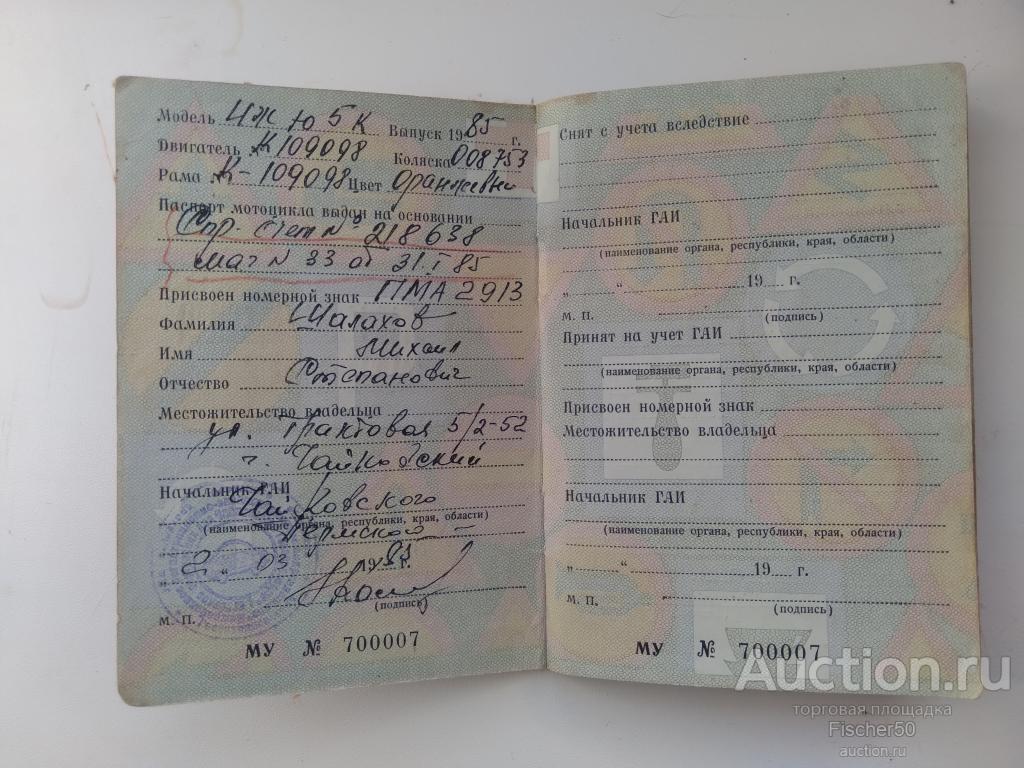 Модель ИЖ Ю 5К Выпуск 1985 г.
Двигатель К109098 Коляска 008753
Рама К-109098 Цвет Оранжевый
Паспорт мотоцикла выдан на основании
Спр-счет № 218638
маг N 33 от 31.I 85
Присвоен номерной знак ПМА 2913
Фамилия Шалахов
Имя Михаил
Отчество Степанович
Местожительство владельца
ул. Трактовая 5/2-52
г. Чайковский
Начальник ГАИ
Чайковского
(наименование органа, республики, края, области)
Пермской
„2“ 03 19 г.
(подпись)
М. П.
МУ № 700007
Снят с учета вследствие
Начальник ГАИ
(наименование органа, республики, края, области)
„ “ 19 г.
М. П. (подпись)
Принят на учет ГАИ
(наименование органа, республики, края, области)
Присвоен номерной знак
Местожительство владельца
Начальник ГАИ
(наименование органа, республики, края, области)
„ “ 19 г.
М. П. (подпись)
МУ № 700007
Auction.ru
торговая площадка
Fischer50
auction.ru